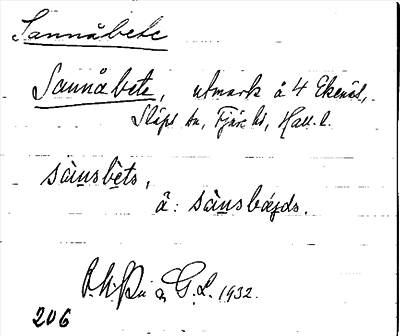 Sannåbete
Sannåbete, utmark å 4 Ekenäs,
Släps sn, Fjäre hd, Hall. l.
sànsbèts,
ä: sànsbáɟds.
G. L. 1932.
206